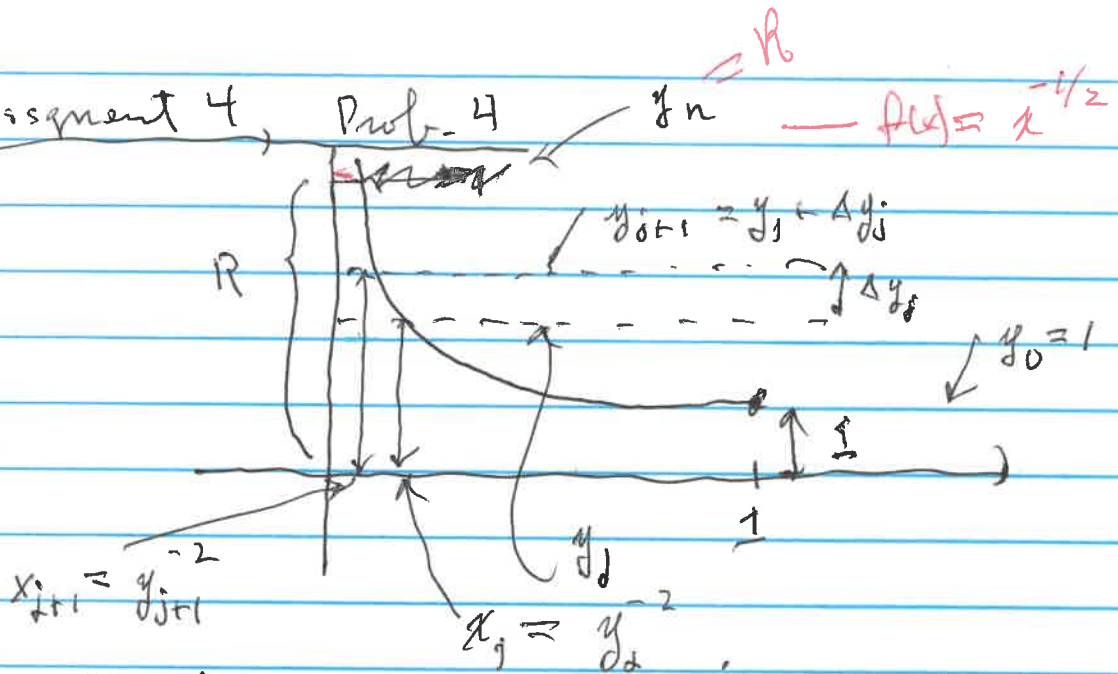 = R
issgnment 4 Prob. 4 y_n — f(x) = x^{-1/2}
y_{j+1} = y_j + Δy_j
R
Δy_j
y_0 = 1
1
1
y_j
x_{j+1} = y_{j+1}^{-2}
x_j = y_j^{-2}